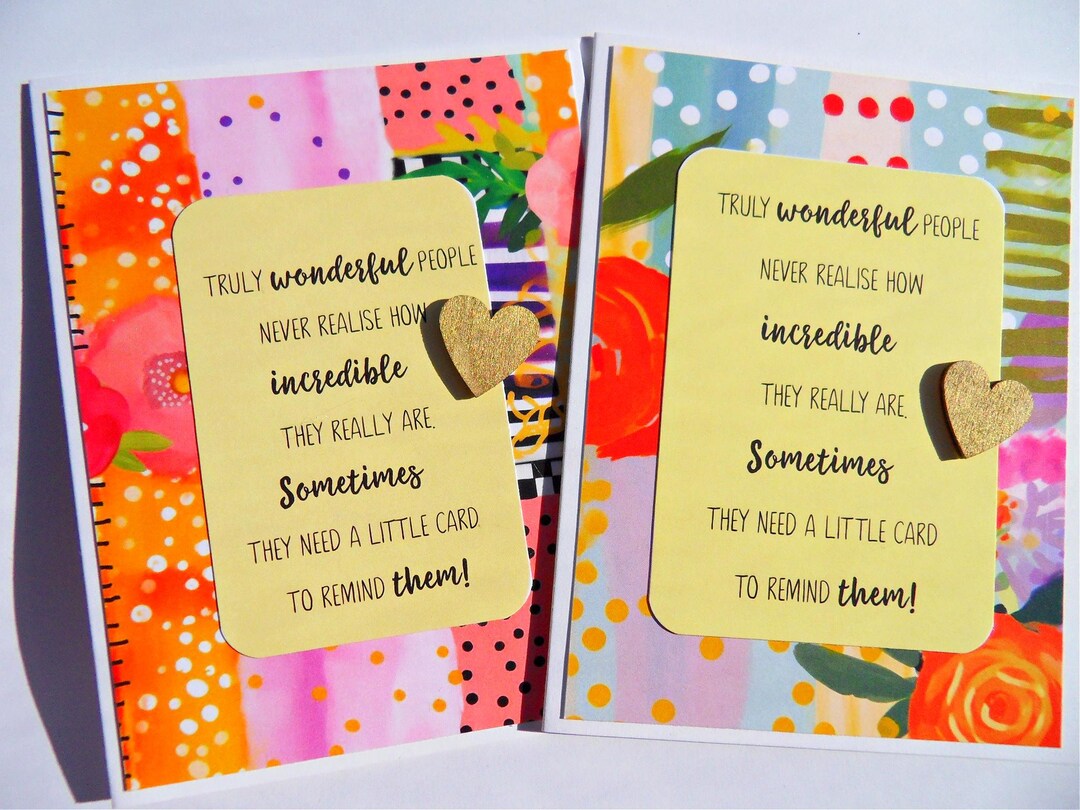 TRULY wonderful PEOPLE
NEVER REALISE HOW
incredible
THEY REALLY ARE.
Sometimes
THEY NEED A LITTLE CARD.
TO REMIND them!
TRULY wonderful PEOPLE
NEVER REALISE HOW
incredible
THEY REALLY ARE.
Sometimes
THEY NEED A LITTLE CARD
TO REMIND them!